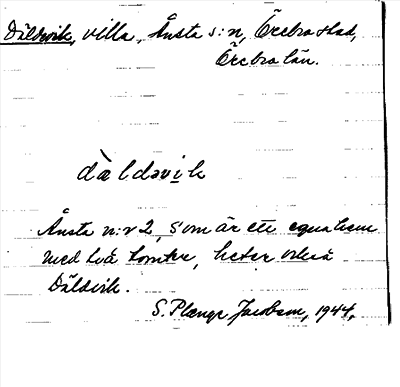 Däldvik, villa, Ånsta s:n, Örebro stad,
Örebro län.
dàldəvik
Ånsta n:r 2, som är ett egnahem
med två tomter, heter också
Däldvik.
S. Plænge Jacobson, 1944.